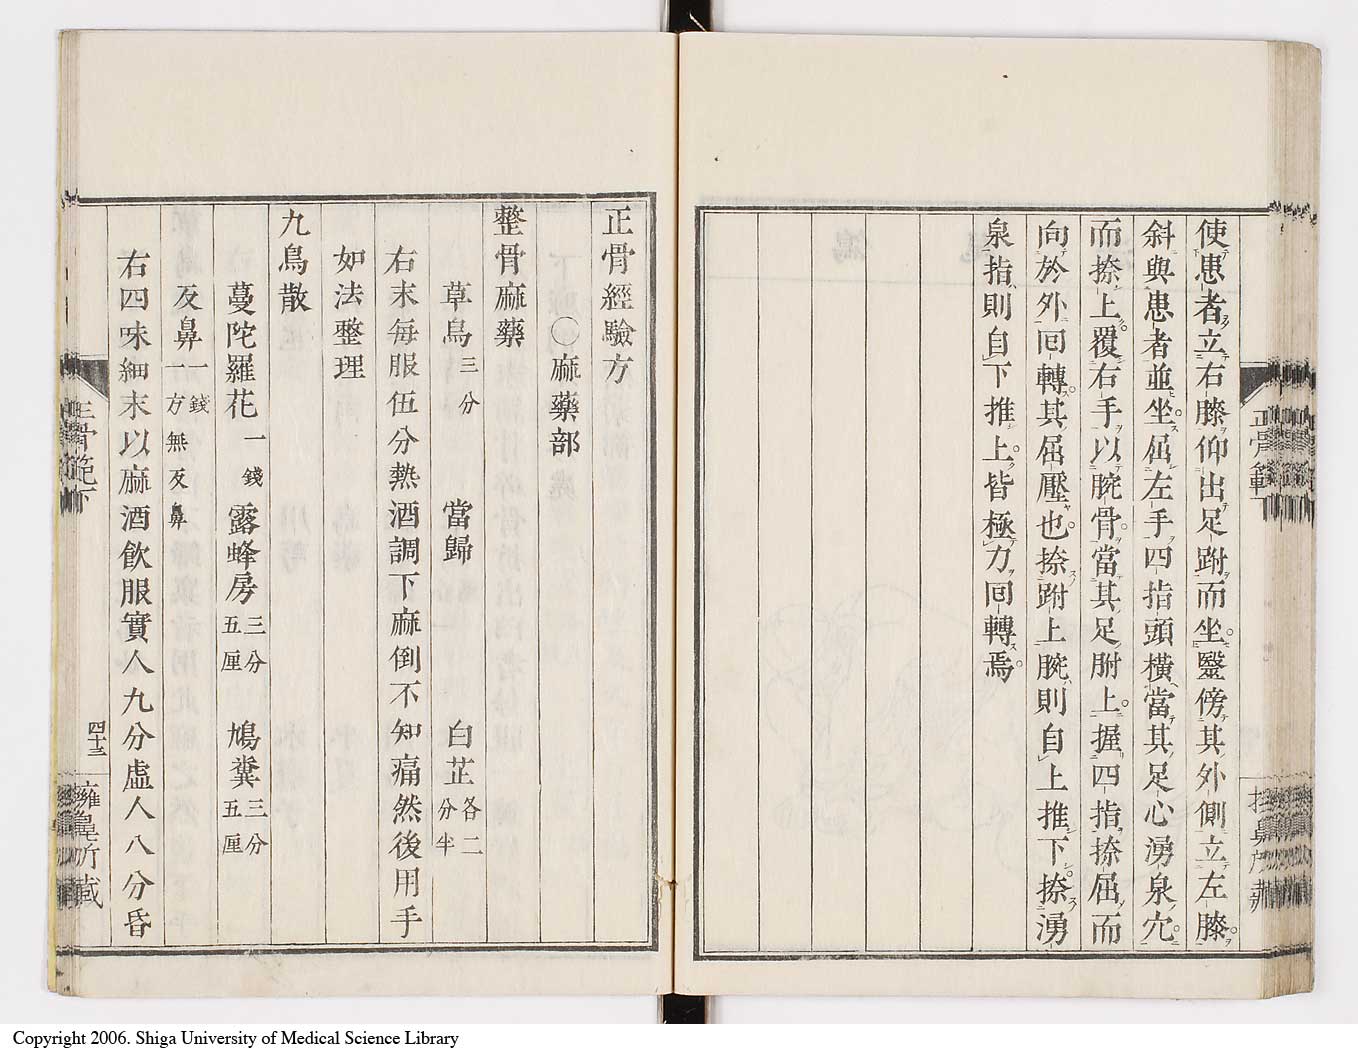 使患者立右膝仰出足跗而坐毉傍其外側立左膝
斜與患者並坐屈左手四指頭横當其足心湧泉穴
而捺上覆右手以腕骨當其足跗上握四指捺屈而
向於外回轉其屈壓也捺跗上腕則自上推下捺湧
泉指則自下推上皆極力回轉焉
正骨範
正骨經驗方
○麻藥部
整骨麻藥
草烏三分 當歸 白芷各二分半
右末每服伍分熱酒調下麻倒不知痛然後用手
如法整理
九烏散
蔓陀羅花一錢 露蜂房三分五厘 鳩糞三分五厘
反鼻一錢一方無反鼻
右四味細末以麻酒飲服實人九分虛人八分昏
正骨範下
四十三
Copyright 2006. Shiga University of Medical Science Library